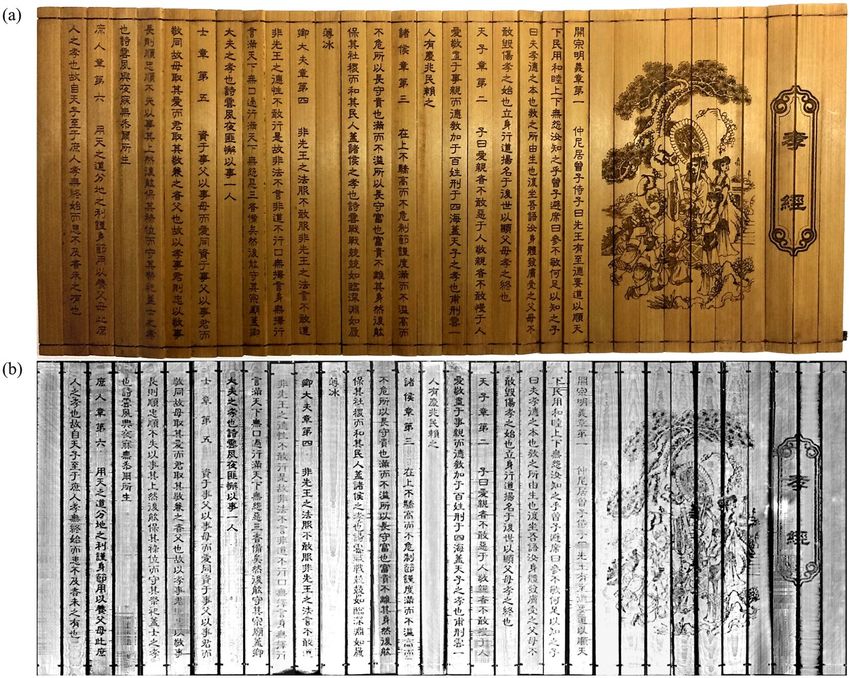 (a)
孝經
開宗明義章第一 仲尼居曾子侍子曰先王有至德要道以順天
下民用和睦上下無怨汝知之乎曾子避席曰參不敏何足以知之子
曰夫孝德之本也教之所由生也復坐吾語汝身體髮膚受之父母不
敢毀傷孝之始也立身行道揚名于後世以顯父母孝之終也
天子章第二 子曰愛親者不敢惡于人敬親者不敢慢于人
愛敬盡于事親而德教加于百姓刑于四海蓋天子之孝也甫刑雲一
人有慶兆民賴之
諸侯章第三 在上不驕高而不危制節謹度滿而不溢高而
不危所以長守貴也滿而不溢所以長守富也富貴不離其身然後能
保其社稷而和其民人蓋諸侯之孝也詩雲戰戰兢兢如臨深淵如履
薄冰
卿大夫章第四 非先王之法服不敢服非先王之法言不敢道
非先王之德性不敢行是故非法不言非道不行口無擇言身無擇行
言滿天下無口過行滿天下無怨惡三者備矣然後能守其宗廟蓋卿
大夫之孝也詩雲夙夜匪懈以事一人
士章第五 資于事父以事母而愛同資于事父以事君而
敬同故母取其愛而君取其敬兼之者父也故以孝事君則忠以敬事
長則順忠順不失以事其上然後能保其祿位而守其祭祀蓋士之孝
也詩雲夙興夜寐無忝爾所生
庶人章第六 用天之道分地之利謹身節用以養父母此庶
人之孝也故自天子至于庶人孝無終始而患不及者未之有也
(b)
孝經
開宗明義章第一 仲尼居曾子侍子曰先王有至德要道以順天
下民用和睦上下無怨汝知之乎曾子避席曰參不敏何足以知之子
曰夫孝德之本也教之所由生也復坐吾語汝身體髮膚受之父母不
敢毀傷孝之始也立身行道揚名于後世以顯父母孝之終也
天子章第二 子曰愛親者不敢惡于人敬親者不敢慢于人
愛敬盡于事親而德教加于百姓刑于四海蓋天子之孝也甫刑雲一
人有慶兆民賴之
諸侯章第三 在上不驕高而不危制節謹度滿而不溢高而
不危所以長守貴也滿而不溢所以長守富也富貴不離其身然後能
保其社稷而和其民人蓋諸侯之孝也詩雲戰戰兢兢如臨深淵如履
薄冰
卿大夫章第四 非先王之法服不敢服非先王之法言不敢道
非先王之德性不敢行是故非法不言非道不行口無擇言身無擇行
言滿天下無口過行滿天下無怨惡三者備矣然後能守其宗廟蓋卿
大夫之孝也詩雲夙夜匪懈以事一人
士章第五 資于事父以事母而愛同資于事父以事君而
敬同故母取其愛而君取其敬兼之者父也故以孝事君則忠以敬事
長則順忠順不失以事其上然後能保其祿位而守其祭祀蓋士之孝
也詩雲夙興夜寐無忝爾所生
庶人章第六 用天之道分地之利謹身節用以養父母此庶
人之孝也故自天子至于庶人孝無終始而患不及者未之有也